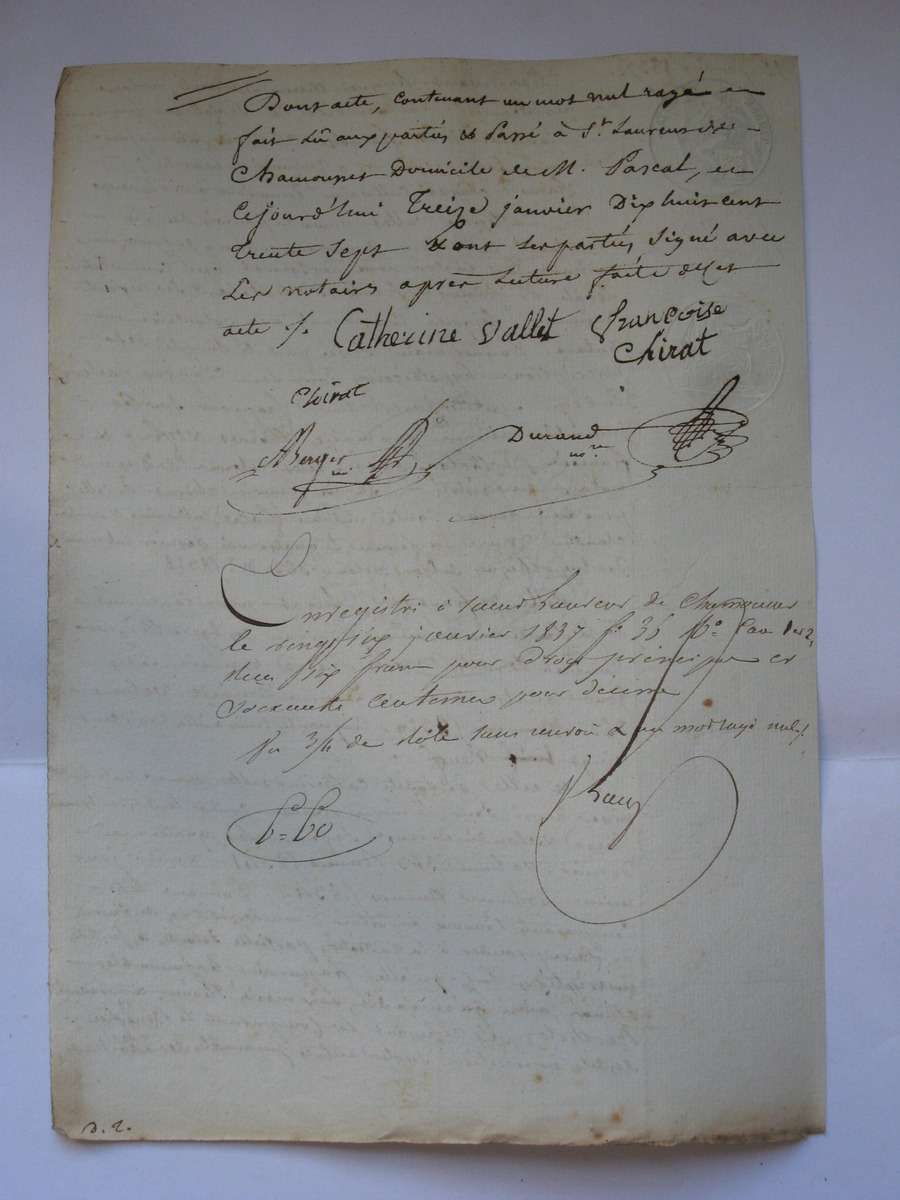 Dont acte, contenant un mot nul rayé
fait Lû aux parties & Passé à St. Laurent de
Chamousset Domicile de M. Pascal, en
Cejourd'hui Treize janvier Dix huit cent
Trente Sept & ont les parties Signé avec
Les notaires après Lecture faite de cet
acte ./.
Catherine Vallet Françoise
Chirat
Chirat
Berger Durand
nre
Enregistré à Saint Laurent de Chamousset
le vingt six janvier 1837 fo 36
six francs pour droit principal et
soixante centimes pour décime
de rôle sans renvoi & un mot rayé nul
6=60
D. 2.